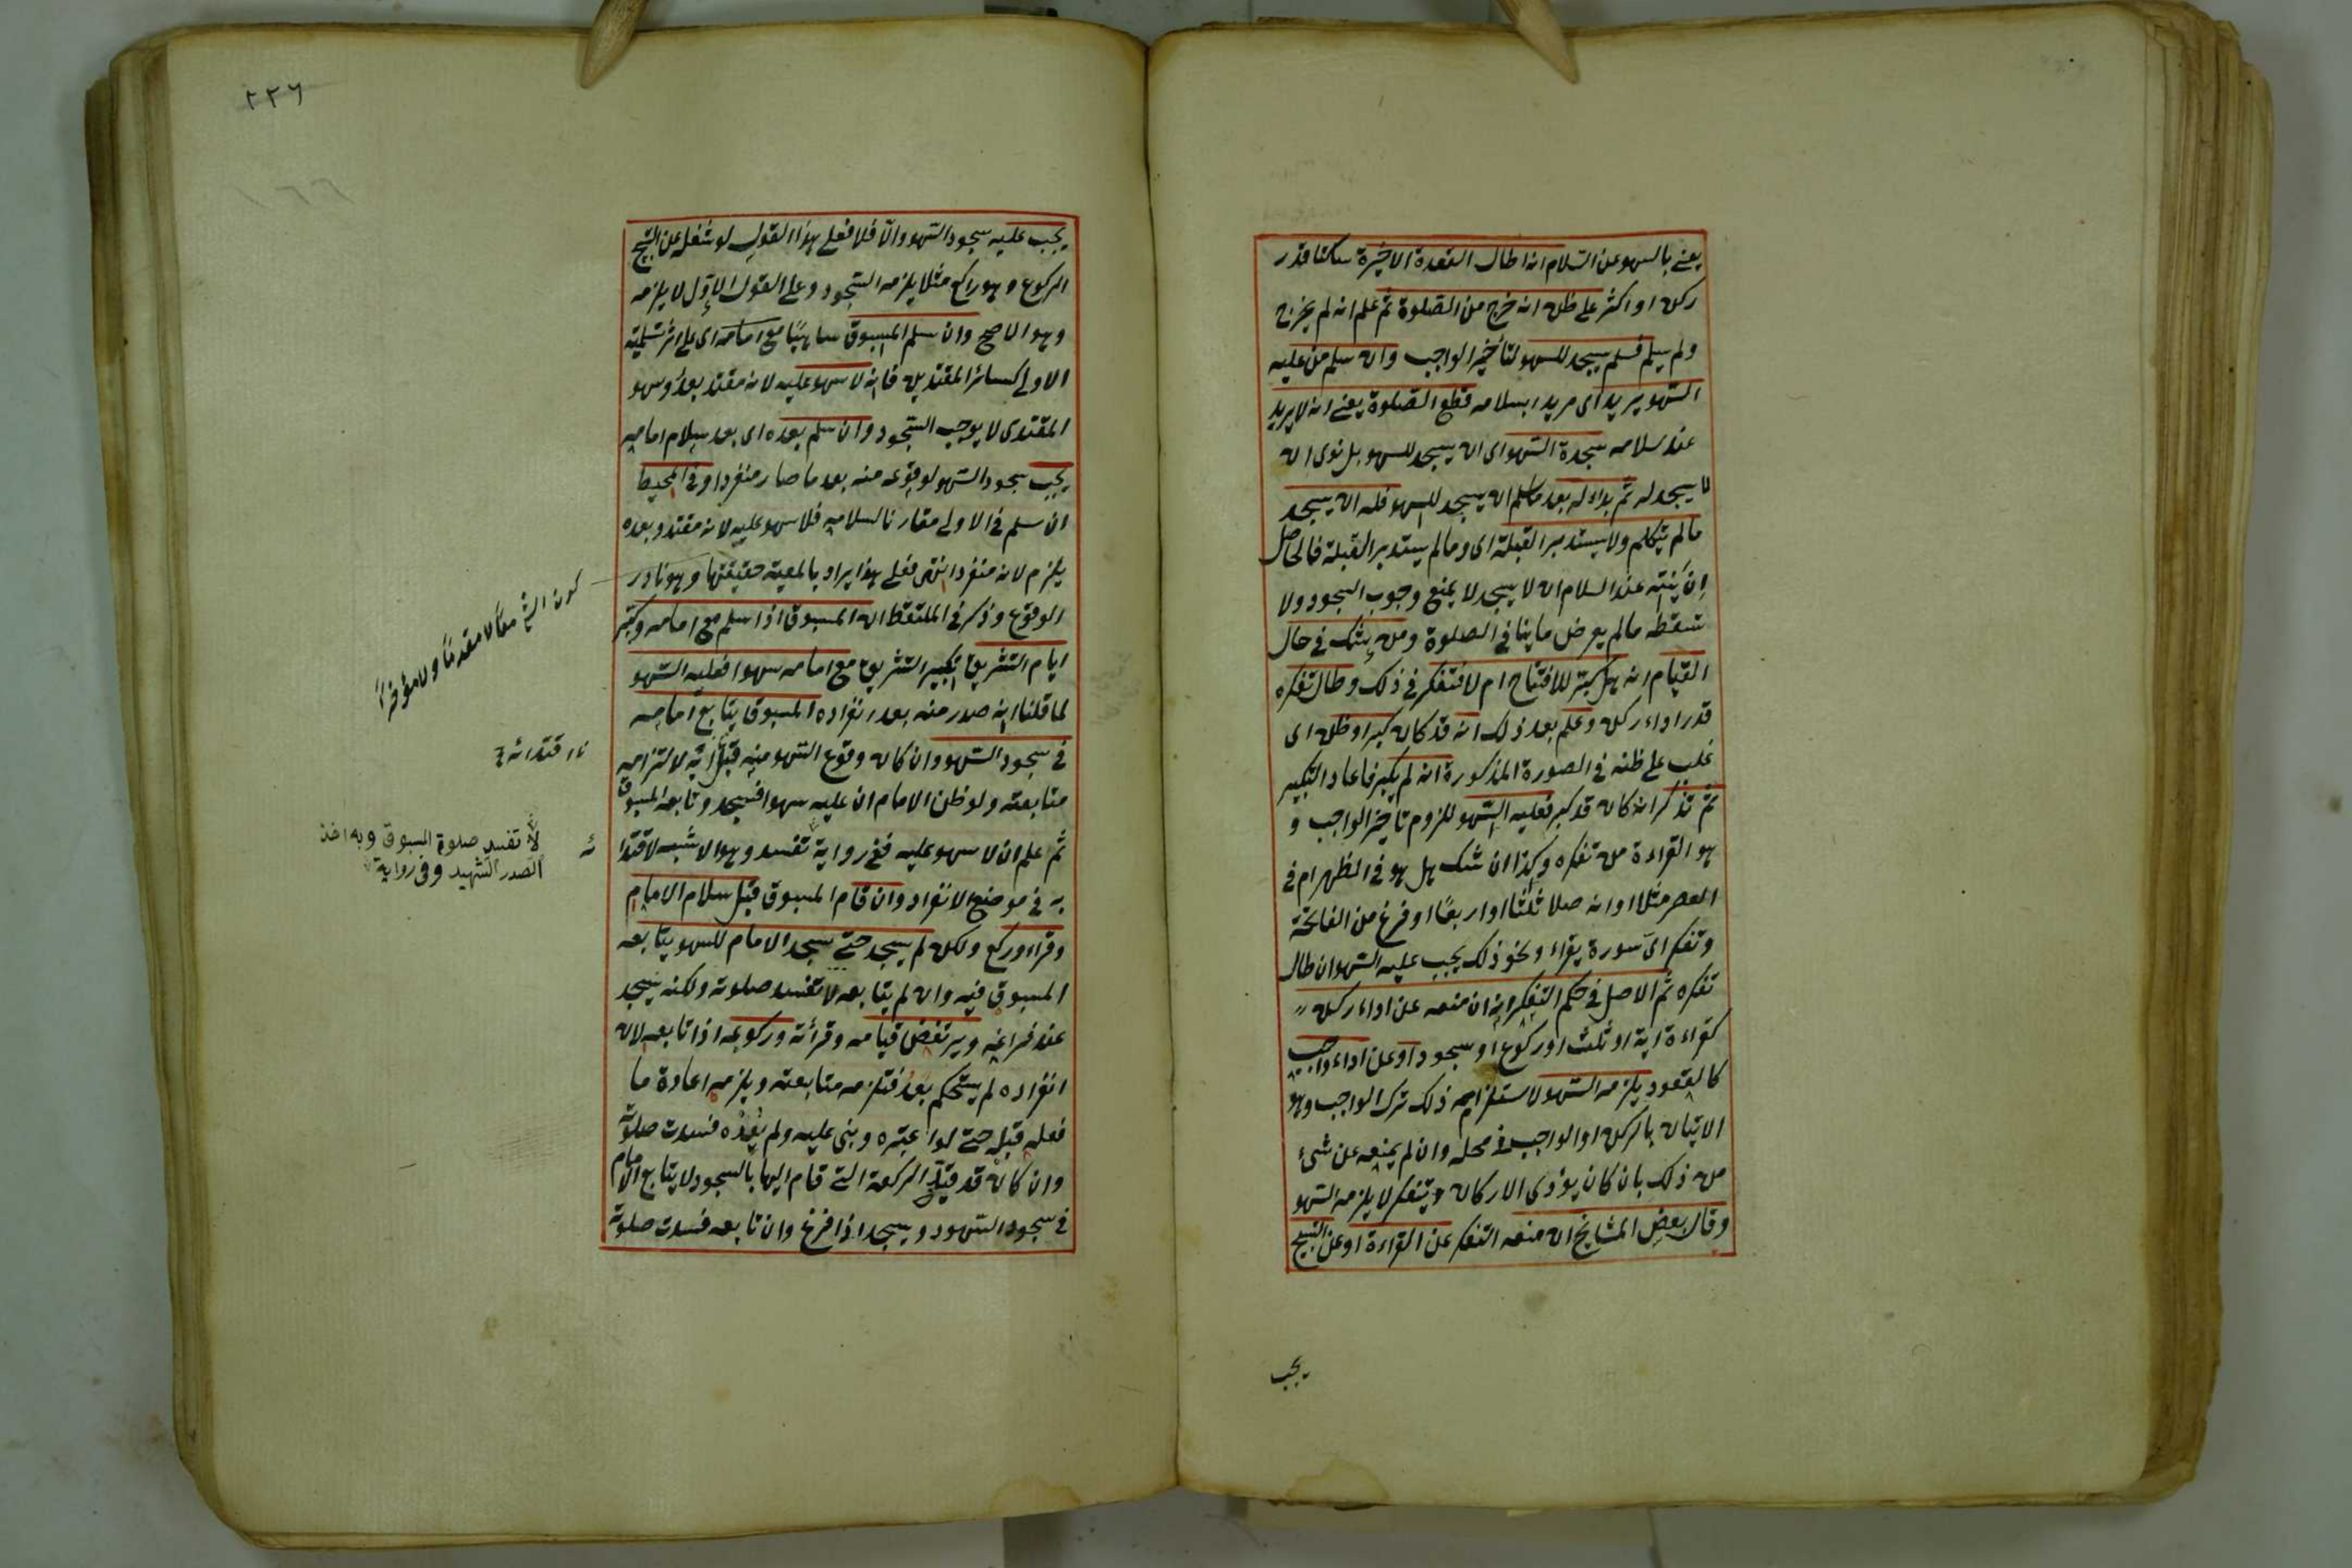 يعنے بالسهو عن السلام انه اطال القعدة الاخيرة ساكتا قدر
ركن او اكثر على ظن انه خرج من الصلوة ثم علم انه لم يخرج
ولم يسلم فسلم يسجد للسهو لتأخير الواجب وان سلم من عليه
السهو يريد اى مريدا بسلامه قطع الصلوة يعنے انه لا يريد
عند سلامه سجدة السهو اى ان يسجد للسهو بل نوى ان
لا يسجد له ثم بداء له بعد ما سلم ان يسجد للسهو فله ان يسجد
ما لم يتكلم ولا يستدبر القبلة اى وما لم يستدبر القبلة فالحاصل
ان نيته عند السلام ان لا يسجد لا يمنع وجوب السجود ولا
تسقطه ما لم يعرض ما ينافى الصلوة ومن شك فى حال
القيام انه هل كبر للافتتاح ام لا فتفكر فى ذلك وطال تفكره
قدر اداء ركن وعلم بعد ذلك انه قد كان كبر او ظن اى
غلب على ظنه فى الصورة المذكورة انه لم يكبر فاعاد التكبير
ثم تذكر انه كان قد كبر فعليه السهو للزوم تاخير الواجب و
هو القراءة من تفكره وكذا ان شك هل هو فى الظهر ام فى
العصر مثلا او انه صلا ثلثا او اربعًا او فرغ من الفاتحة
وتفكر اىّ سورة يقراء ونحو ذلك يجب عليه السهو ان طال
تفكره ثم الاصل فى حكم التفكر انه ان منعه عن اداء ركن
كقراءة اية او ثلث او ركوع او سجود او عن اداء واجب
كالقعود يلزمه السهو لاستلزامه ذلك ترك الواجب وهو
الاتيان بالركن او الواجب فى محله وان لم يمنعه عن شئ
من ذلك بان كان يؤدى الاركان ويتفكر لا يلزمه السهو
وقال بعض المشايخ ان منعه التفكر عن القراءة او عن التسبيح
يجب
٢٢٦
يجب عليه سجود السهو والّا فلا فعلى هذا القول لو شغل عن تسبيح
الركوع وهو راكع مثلا يلزمه السجود وعلى القول الاول لا يلزمه
وهو الاصح وان سلم المسبوق ساهيًا مع امامه اى على اثر تسليمته
الاولى كسائر المقتدين فانه لا سهو عليه لانه مقتد بعدُ وسهو
المقتدى لا يوجب السجود وان سلم بعده اى بعد سلام امامه
يجب سجود السهو لوقوعه منه بعد ما صار منفردا وفى المحيط
ان سلم فى الاولى مقارنا لسلامه فلا سهو عليه لانه مقتد وبعده
يلزم لانه منفرد انتهى فعلى هذا يراد بالمعية حقيقتها وهو نادر
الوقوع وذكر فى الملتقط ان المسبوق اذا سلم مع امامه وكبّر
ايام التشريق تكبير التشريق مع امامه سهوا فعليه السهو
لما قلنا انه صدر منه بعد انفراده المسبوق يتابع امامه
فى سجود السهو وان كان وقوع السهو منه قبل لالتزامه
متابعته ولو ظن الامام ان عليه سهوا فسجد وتابعه المسبوق
ثم علم ان لا سهو عليه ففى رواية تفسد وهو الاشبه لاقتدا
به فى موضع الانفراد وان قام المسبوق قبل سلام الامام
وقراء وركع ولكن لم يسجد حتے سجد الامام للسهو يتابعه
المسبوق فيه وان لم يتابعه لا تفسد صلوته ولكنه يسجد
عند فراغه ويرتفض قيامه وقرائته وركوعه اذا تابعه لان
انفراده لم يستحكم بعدُ فتلزمه متابعته ويلزمه اعادة ما
فعله قبل حتے لو اعتبره وبنى عليه ولم يُعِدْه فسدت صلوته
وان كان قد قيّد الركعة التے قام اليها بالسجود لا يتابع الامام
فى سجود السهو ويسجد اذا فرغ وان تابعه فسدت صلوته
كون الشئ معًا لا مقدمًا ولا مؤخرًا
اقتدائه
لا تفسد صلوة المسبوق وبه اخذ
الصدر الشهيد وفى رواية